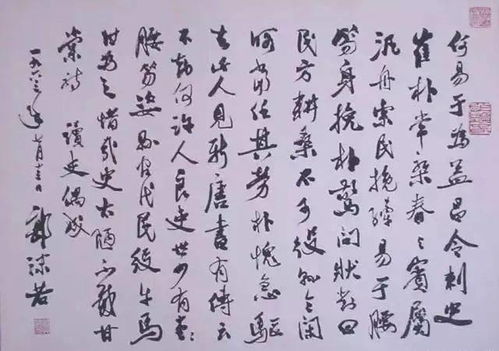 何易于为益昌令刺史
崔朴常乘春与宾属
汎舟索民挽繂易于腰
笏身挽朴驚问状对曰
民方耕桑不可役令闲
任其劳朴愧急驱
去此人见新唐書有傳云
不知何许人良史世少有
腰笏姿代民役牛馬
时为之惜哉史太陋不载甘
棠诗 讀史偶成
一九六三年七月十三日 郭沫若